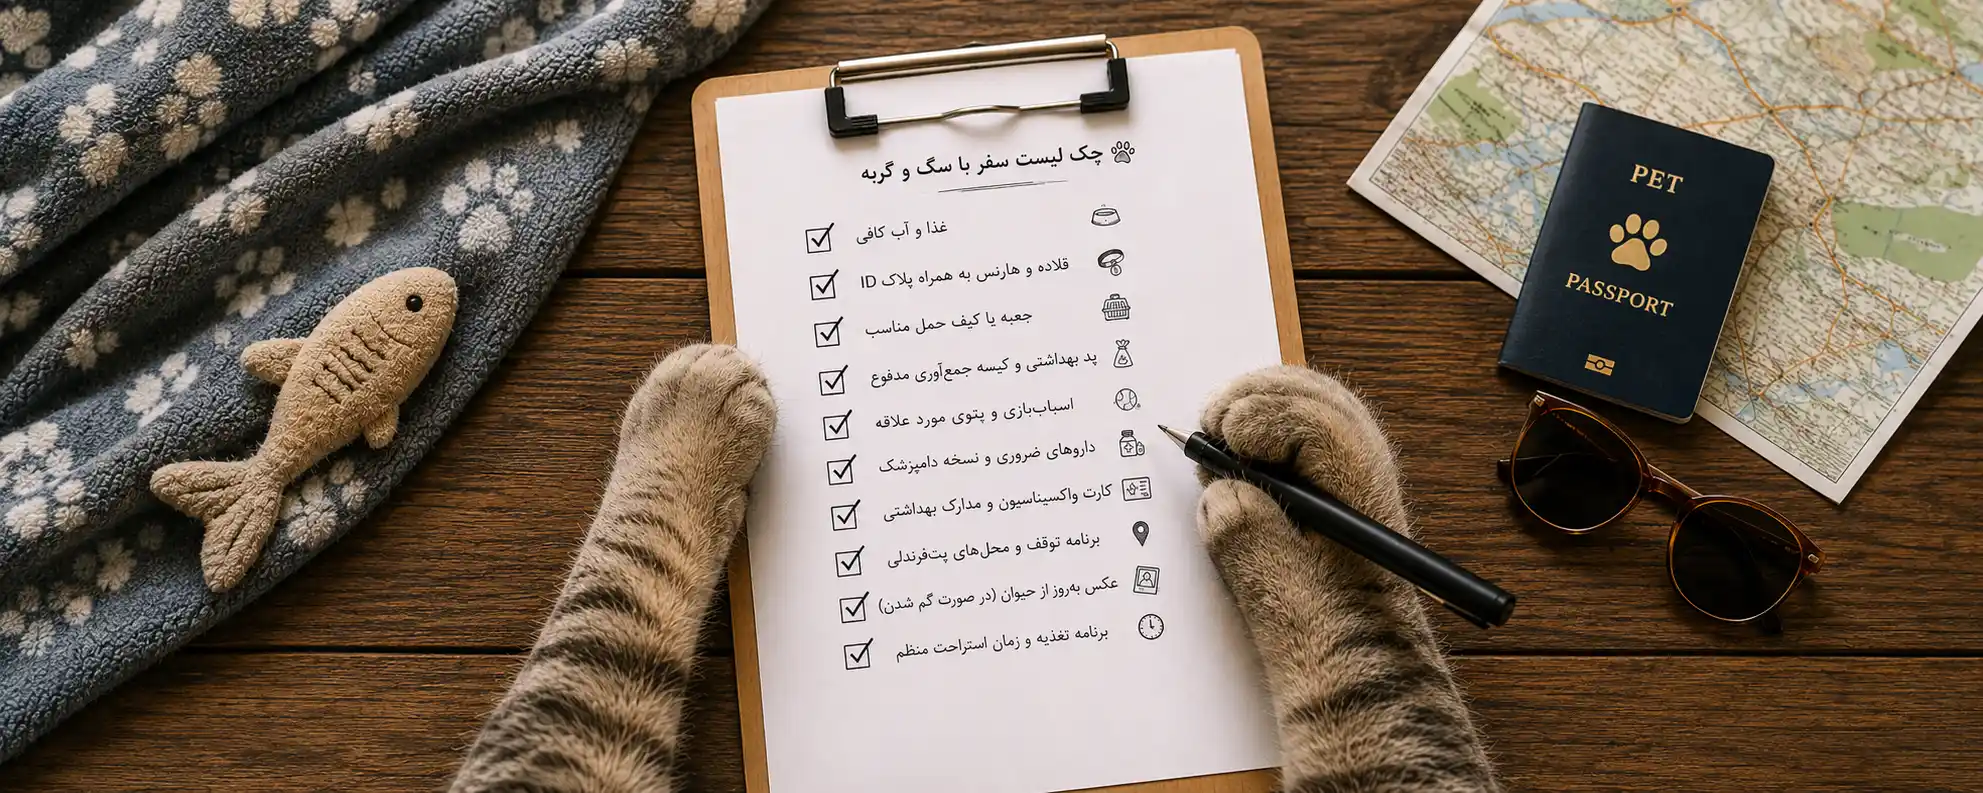 چک لیست سفر با سگ و گربه
غذا و آب کافی
قلاده و هارنس به همراه پلاک ID
جعبه یا کیف حمل مناسب
پد بهداشتی و کیسه جمع‌آوری مدفوع
اسباب‌بازی و پتوی مورد علاقه
داروهای ضروری و نسخه دامپزشک
کارت واکسیناسیون و مدارک بهداشتی
برنامه توقف و محل‌های پت‌فرندلی
عکس به‌روز از حیوان (در صورت گم شدن)
برنامه تغذیه و زمان استراحت منظم
PET
PASSPORT